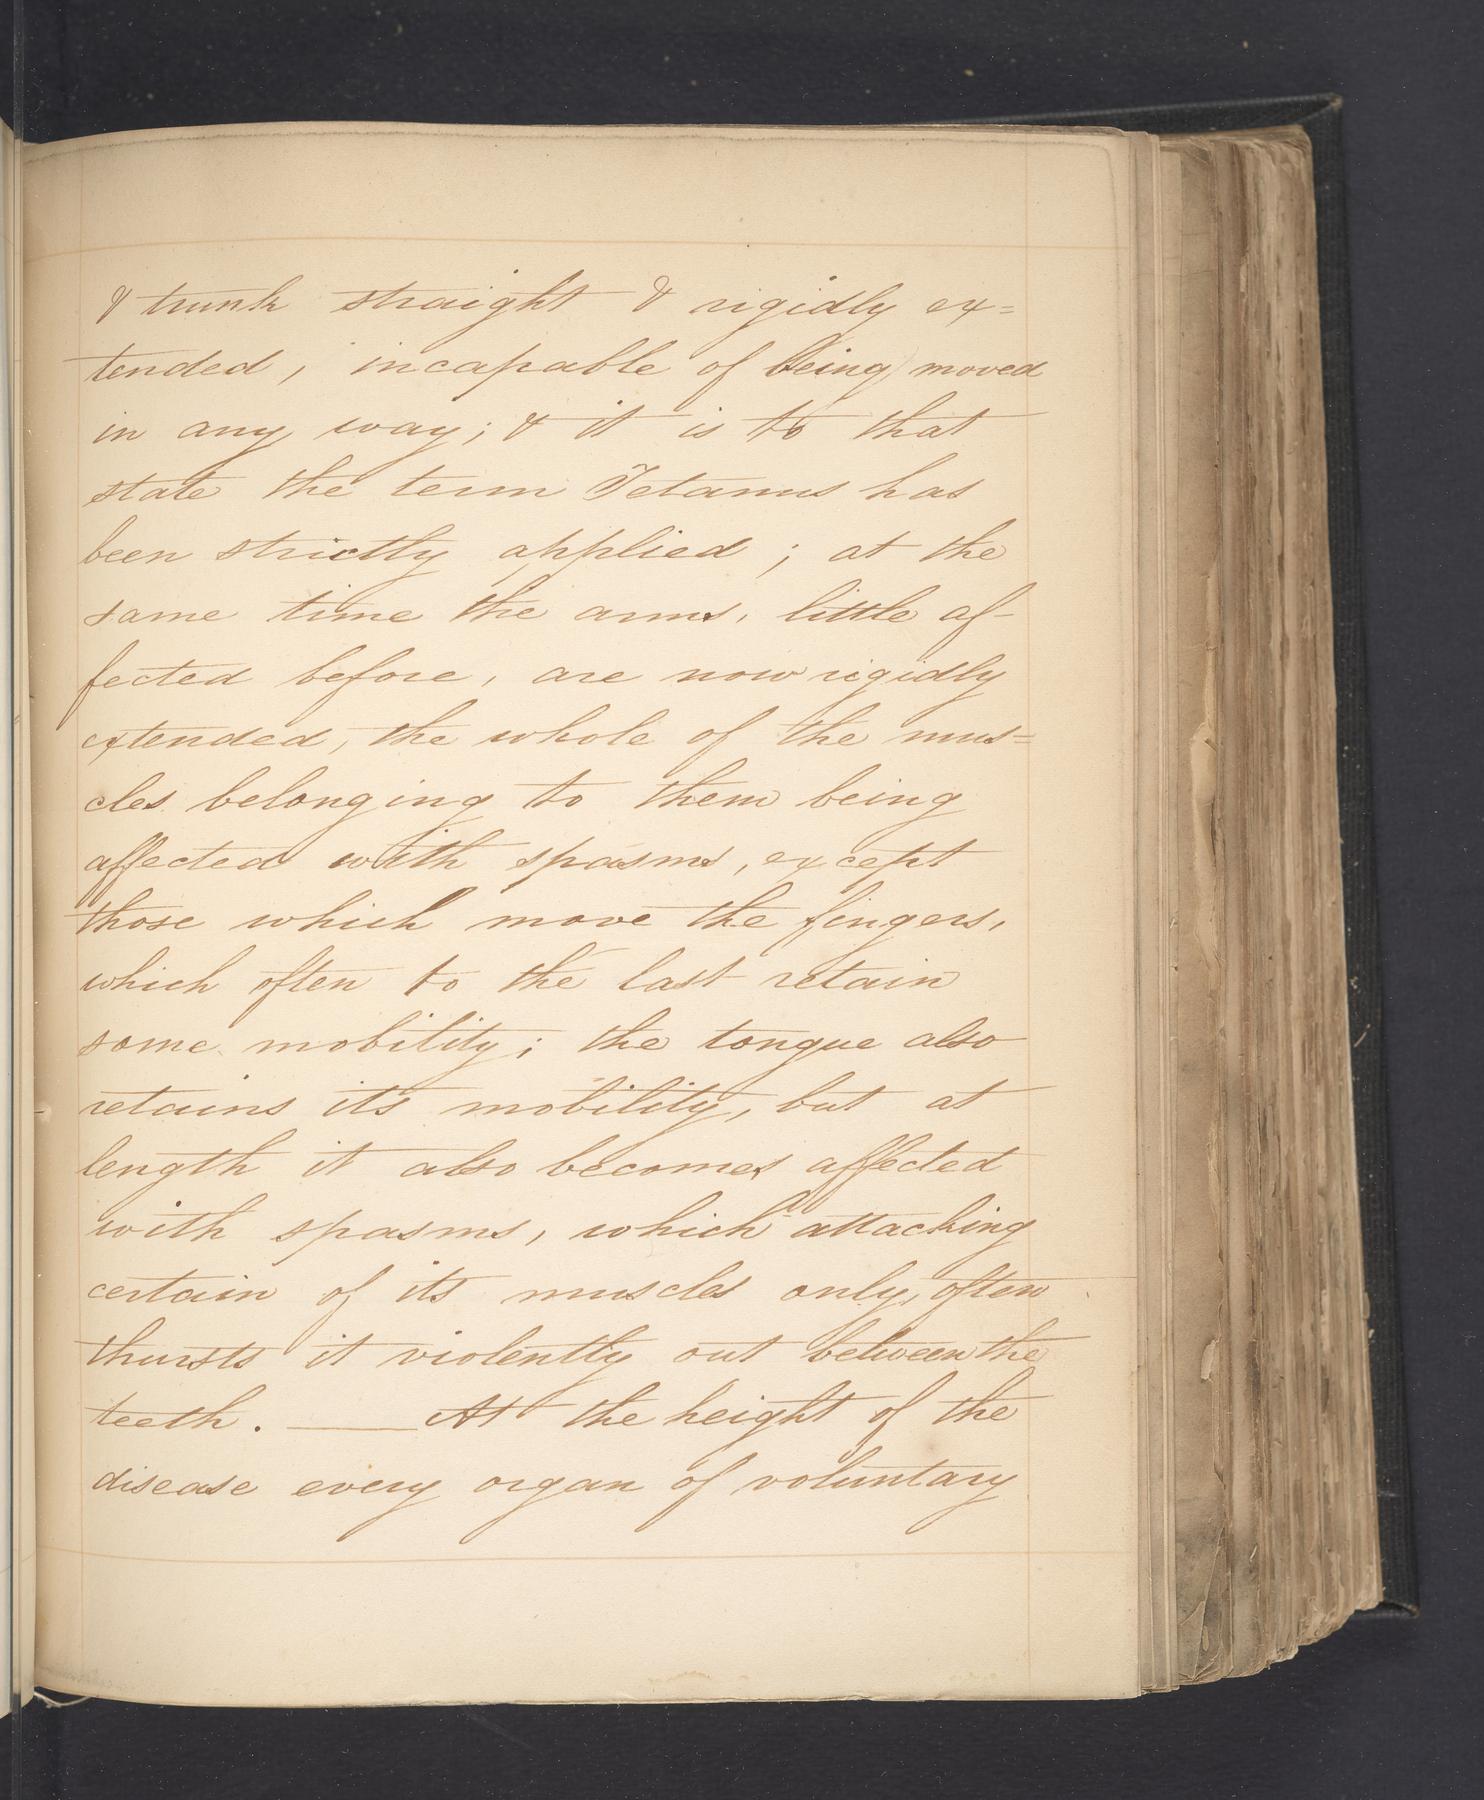 & trunk straight & rigidly ex=
tended, incapable of being moved
in any way; & it is to that
state the term Tetanus has
been strictly applied; at the
same time the arms, little af-
fected before, are now rigidly
extended, the whole of the mus=
cles belonging to them being
affected with spasms, except
those which move the fingers,
which often to the last retain
some mobility; the tongue also
retains its mobility, but at
length it also becomes affected
with spasms, which attacking
certain of its muscles only, often
thursts it violently out between the
teeth. —— At the height of the
disease every organ of voluntary